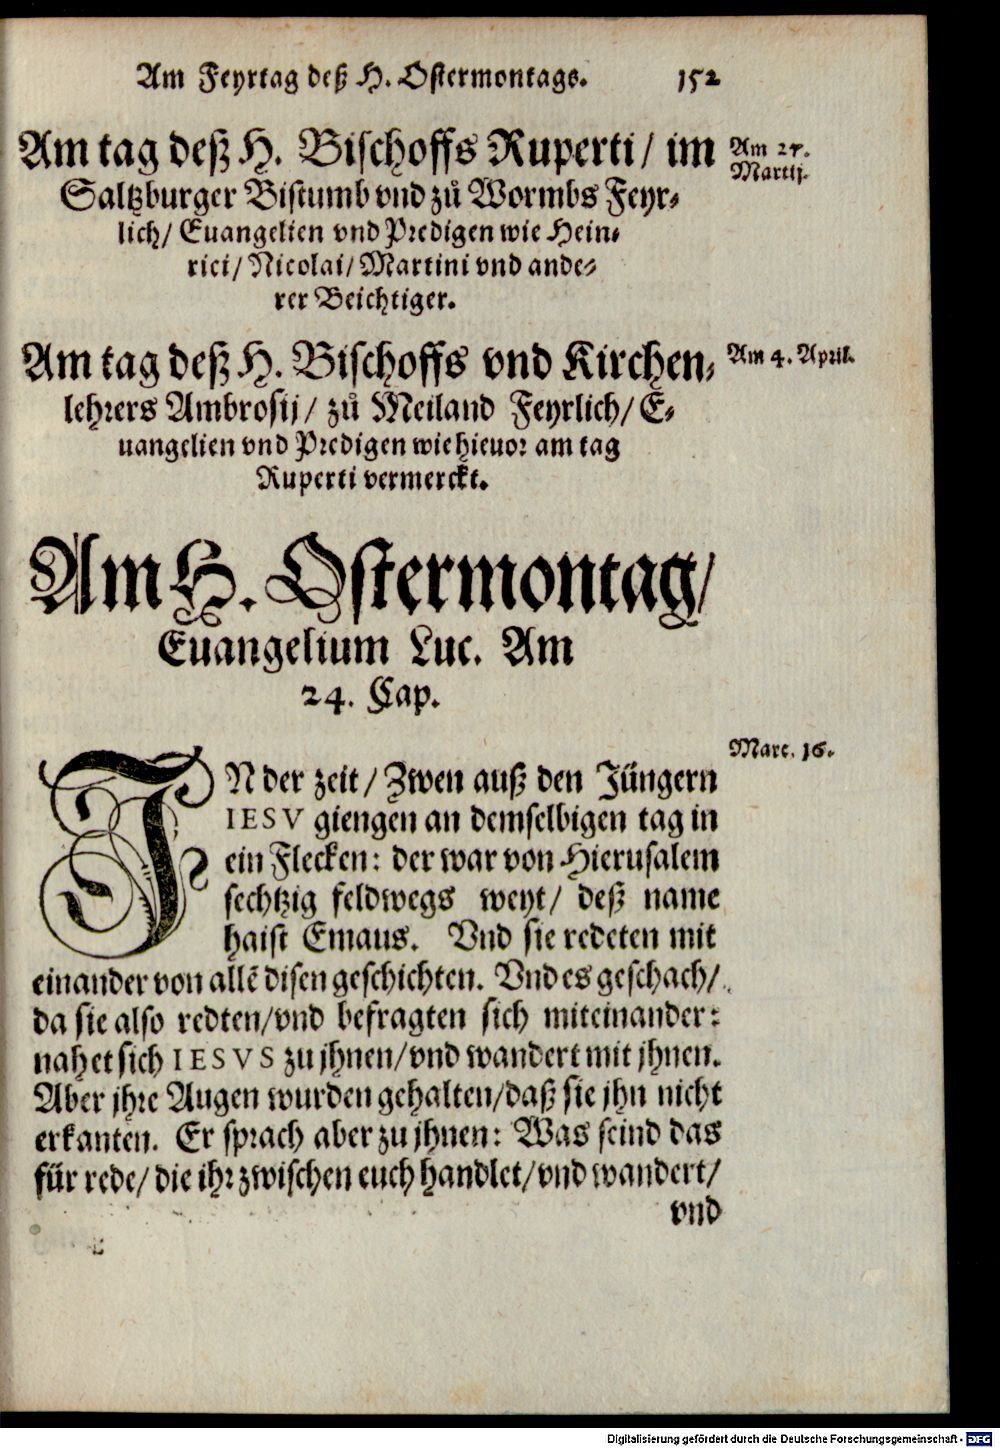 Am Feyrtag deß H. Ostermontags. 152
Am tag deß H. Bischoffs Ruperti/ im
Am 27. Martij.
Saltzburger Bistumb vnd zů Wormbs Feyr⸗
lich/ Euangelien vnd Predigen wie Hein⸗
rici/ Nicolai/ Martini vnd ande⸗
rer Beichtiger.
Am tag deß H. Bischoffs vnd Kirchen⸗
Am 4. April.
lehrers Ambrosij/ zů Meiland Feyrlich/ E⸗
uangelien vnd Predigen wie hieuor am tag
Ruperti vermerckt.
Am H. Ostermontag/
Euangelium Luc. Am
24. Cap.
Marc. 16.
IN der zeit/ Zwen auß den Jüngern
IESV giengen an demselbigen tag in
ein Flecken: der war von Hierusalem
sechtzig feldwegs weyt/ deß name
haist Emaus. Vnd sie redeten mit
einander von allē disen geschichten. Vnd es geschach/
da sie also redten/ vnd befragten sich miteinander:
nahet sich IESVS zu jhnen/ vnd wandert mit jhnen.
Aber jhre Augen wurden gehalten/ daß sie jhn nicht
erkanten. Er sprach aber zu jhnen: Was seind das
für rede/ die ihr zwischen euch handlet/ vnd wandert/
vnd
Digitalisierung gefördert durch die Deutsche Forschungsgemeinschaft - DFG